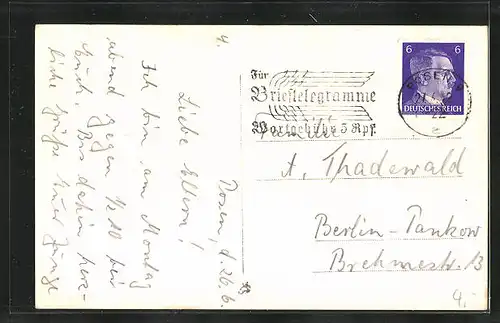 4.
Posen, d. 26.6.
Liebe Eltern!
Ich bin am Montag
abend gegen ½10 bei
Euch. Bis dahin herz-
liche Grüße Euer Junge
Für
Brieftelegramme
Wortgebühr 5 Rpf.
6 6
DEUTSCHES REICH
POSEN
22
Familie
A. Thadewald
Berlin-Pankow
Brehmestr. 13
4,-